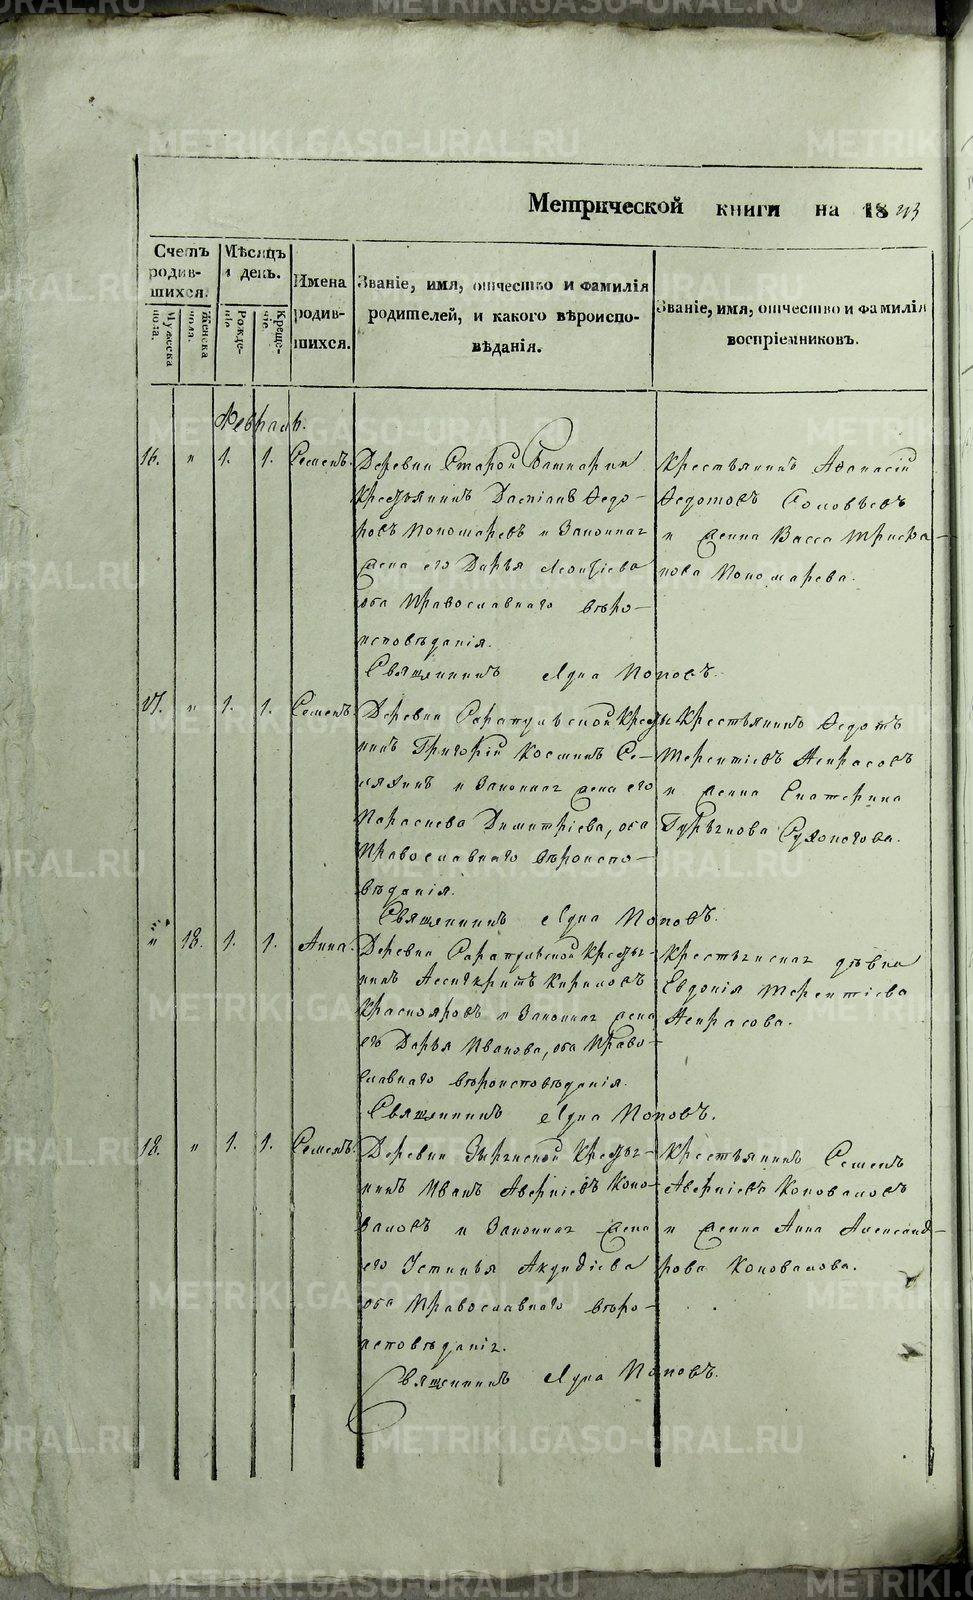 METRIKI.GASO-URAL.RU
Метрической книги на 1843
Счетъ родившихся.
Мѣсяцъ и день.
Имена родившихся.
Званіе, имя, отчество и фамилія родителей, и какого вѣроисповѣданія.
Званіе, имя, отчество и фамилія воспріемниковъ.
Мужеска пола.
Женска пола.
Рожденіе
Крещеніе.
Февраль.
16. " 1. 1. Семенъ.
Деревни Старой
Крестьянинъ Федо-
ровъ Пономаревъ и Законная
жена его Дарья Леонтіева
оба Православнаго вѣро-
исповѣданія.
Священникъ Лука Поповъ.
Крестьянинъ Афанасій
Федотовъ Соловьевъ
и женка Васса Трифа-
нова Пономарева.
17. " 1. 1. Семенъ.
Деревни Сарапульской Кресть
нинъ Григорій Косминъ Се-
и Законная жена его
Параскева Димитріева, оба
Православнаго вѣроиспо-
вѣданія.
Священникъ Лука Поповъ.
Крестьянинъ Федотъ
Терентіевъ Некрасовъ
и женка Екатерина
Гурьянова
" 18. 1. 1. Анна.
Деревни Сарапульской Кресть-
нинъ Асинкритъ Кириловъ
Краснояровъ и Законная жена
его Дарья Иванова, оба Право-
славнаго вѣроисповѣданія.
Священникъ Лука Поповъ.
Крестьянская дѣвка
Евдокія Терентіева
Некрасова.
18. " 1. 1. Семенъ.
Деревни Зырянской Кресть-
нинъ Иванъ Аверкіевъ Коно-
валовъ и Законная жена
его Устинья Акундіева
оба Православнаго вѣро-
исповѣданія.
Священникъ Лука Поповъ.
Крестьянинъ Семенъ
Аверкіевъ Коноваловъ
и женка Анна Александ-
рова Коновалова.